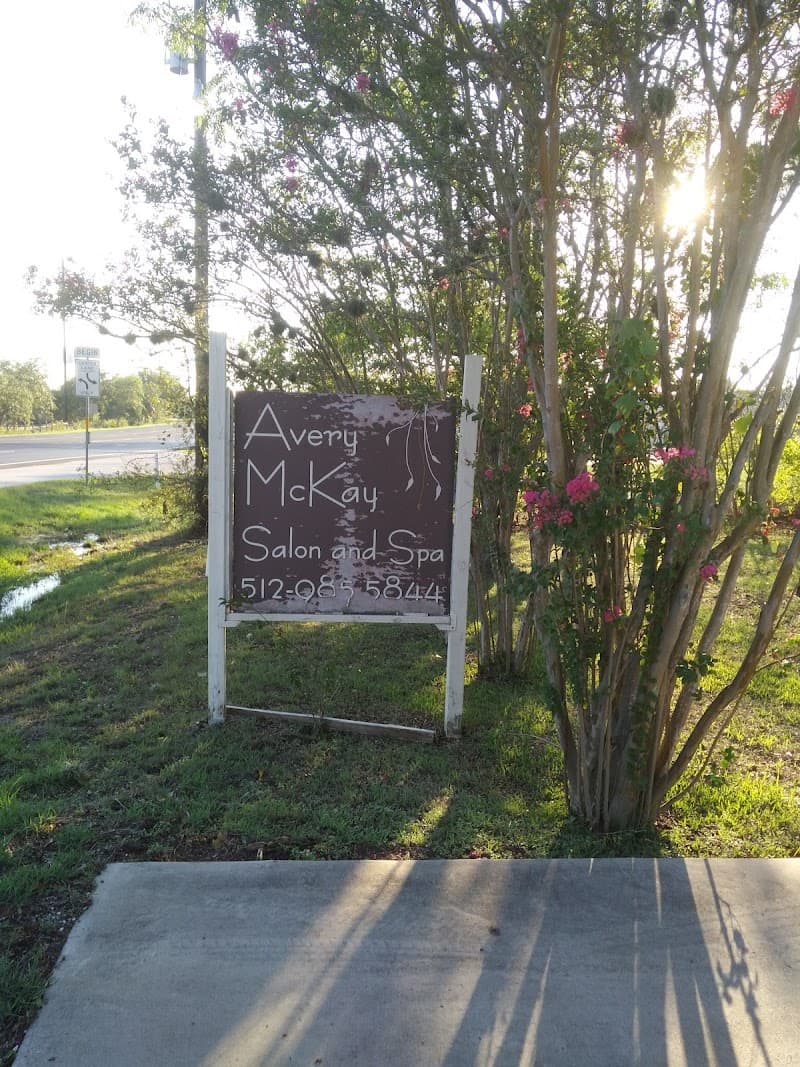 BEGIN
Avery
McKay
Salon and Spa
512-985 5844